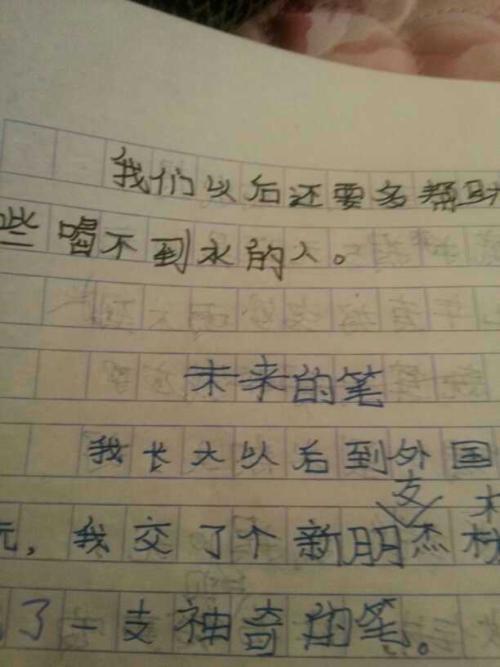 我们以后还要多帮助
些喝不到水的人。
未来的笔
我长大以后到外国
玩,我交了个新朋友杰
了一支神奇的笔。